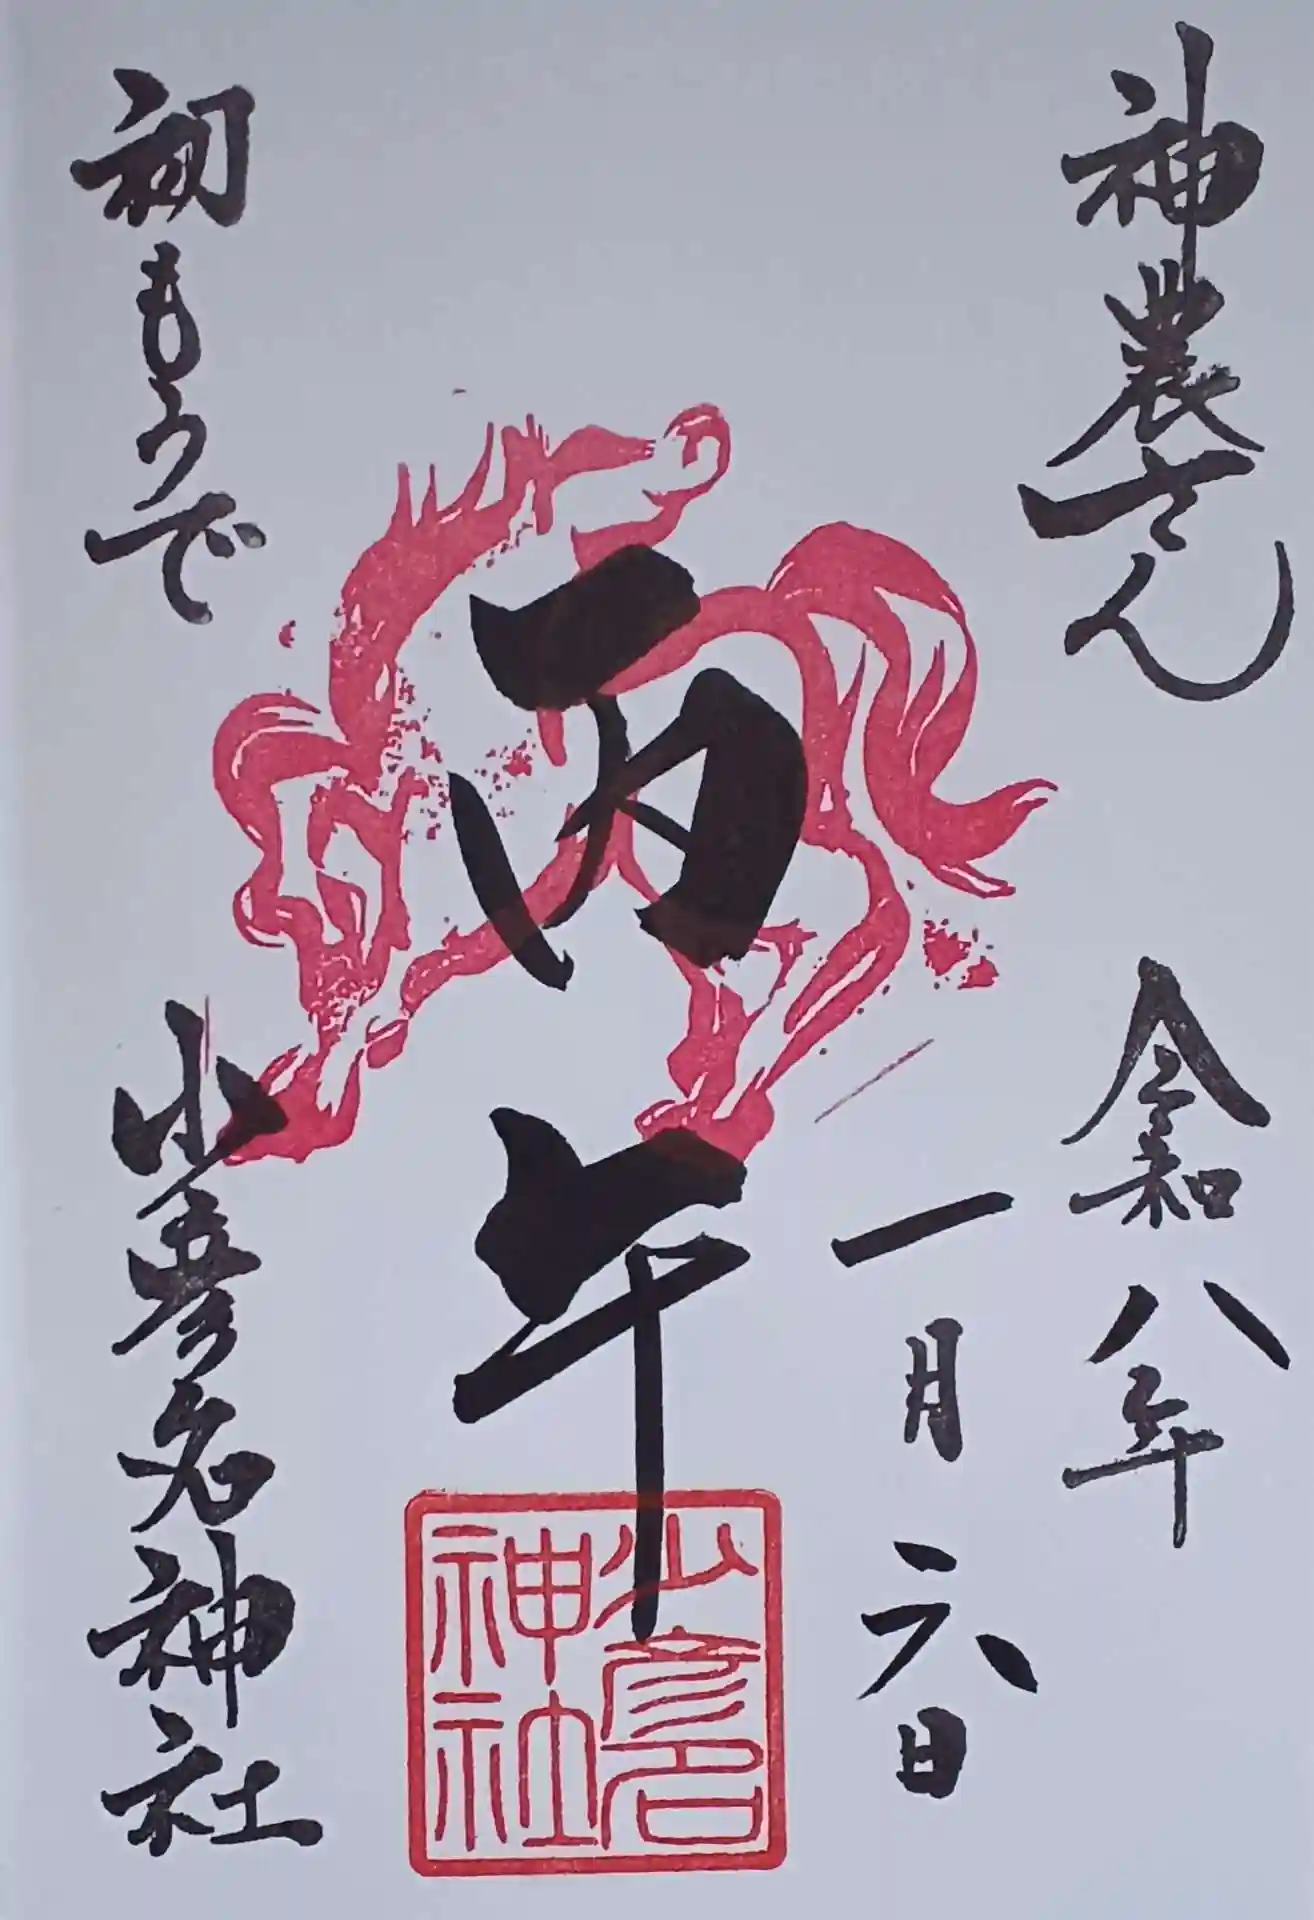 神農さん
令和八年
一月六日
丙午
少彦名
神社
初もうで
少彦名神社